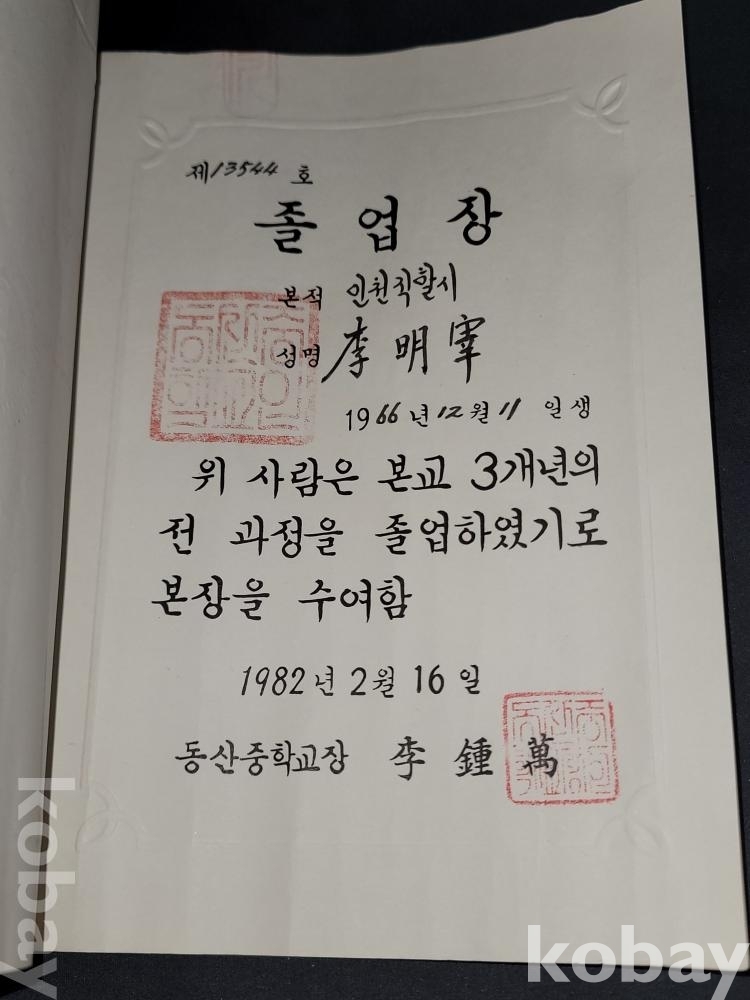 제13544 호
졸업장
본적 인천직할시
성명 李明宰
1966년 12월 11 일생
위 사람은 본교 3개년의
전 과정을 졸업하였기로
본장을 수여함
1982년 2월 16일
동산중학교장 李鍾萬
kobay
kobay